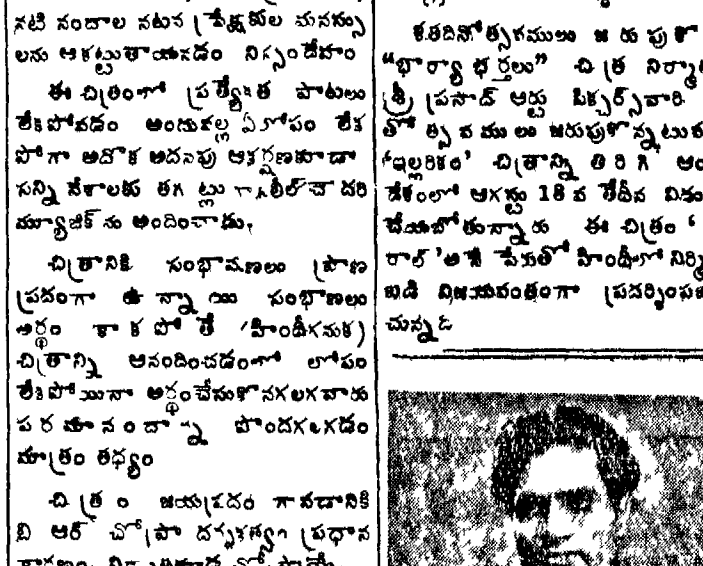 నటి నందాల నటన ప్రేక్షకుల మనస్సు
లను ఆకట్టుతాయనడం నిస్సందేహం
ఈ చిత్రంలో ప్రత్యేకత పాటలు
లేకపోవడం అందువల్ల ఏలోపం లేక
పోగా అదొక అదనపు ఆకర్షణకూడా
సన్ని వేశాలకు తగ ట్లు చౌదరి
మ్యూజిక్ ను అందించాడు.
చిత్రానికి సంభాషణలు ప్రాణ
ప్రదంగా ఉ న్నా యి సంభాణలు
అర్థం కా క పో తే (హిందీగనుక)
చిత్రాన్ని ఆనందించడంలో లోపం
లేకపోయినా అర్థంచేసుకొనగలగవారు
ప ర మా నం దా న్ని పొందగలగడం
మాత్రం తథ్యం
చి త్ర ం జయప్రదం గావడానికి
బి ఆర్ చోప్రా దర్శకత్వం ప్రధాన
శతదినోత్సవములు జ రు పు కొ
“భార్యా భర్తలు” చి త్ర నిర్మా
శ్రీ ప్రసాద్ ఆర్టు పిక్చర్స్‌వారి
తో త్స వ ము లు జరుపుకొన్నటువ
‘ఇల్లరికం’ చిత్రాన్ని తి రి గి ఆం
దేశంలో ఆగస్టు 18 వ తేదీన విడు
చేయబోతున్నా రు ఈ చిత్రం ‘
రాల్ ’అనే పేరుతో హిందీలో నిర్మి
బడి విజయవంతంగా ప్రదర్శింపబ
చున్నది